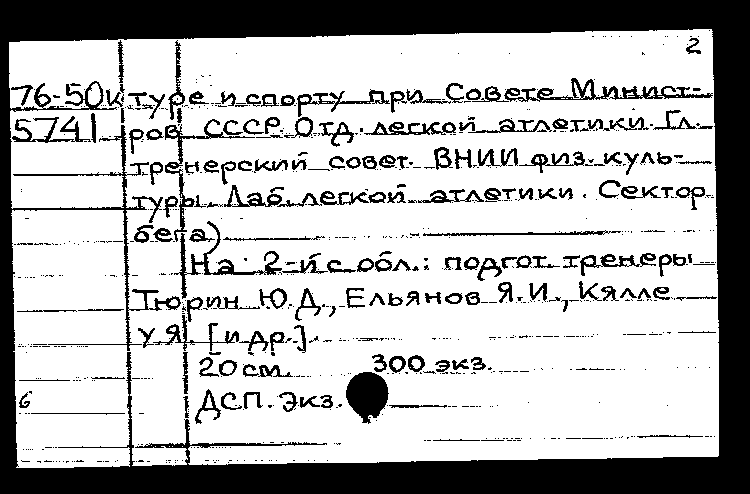 2
76-50к туре и спорту при Совете Минист-
5741 ров СССР. Отд. легкой атлетики. Гл.
тренерский совет. ВНИИ физ. куль-
туры. Лаб. легкой атлетики. Сектор
бега)
На 2-й с обл.: подгот. тренеры
Тюрин Ю.Д., Ельянов Я.И., Кялле
У.Я. [и др.].
20 см. 300 экз.
6 ДСП. Экз.